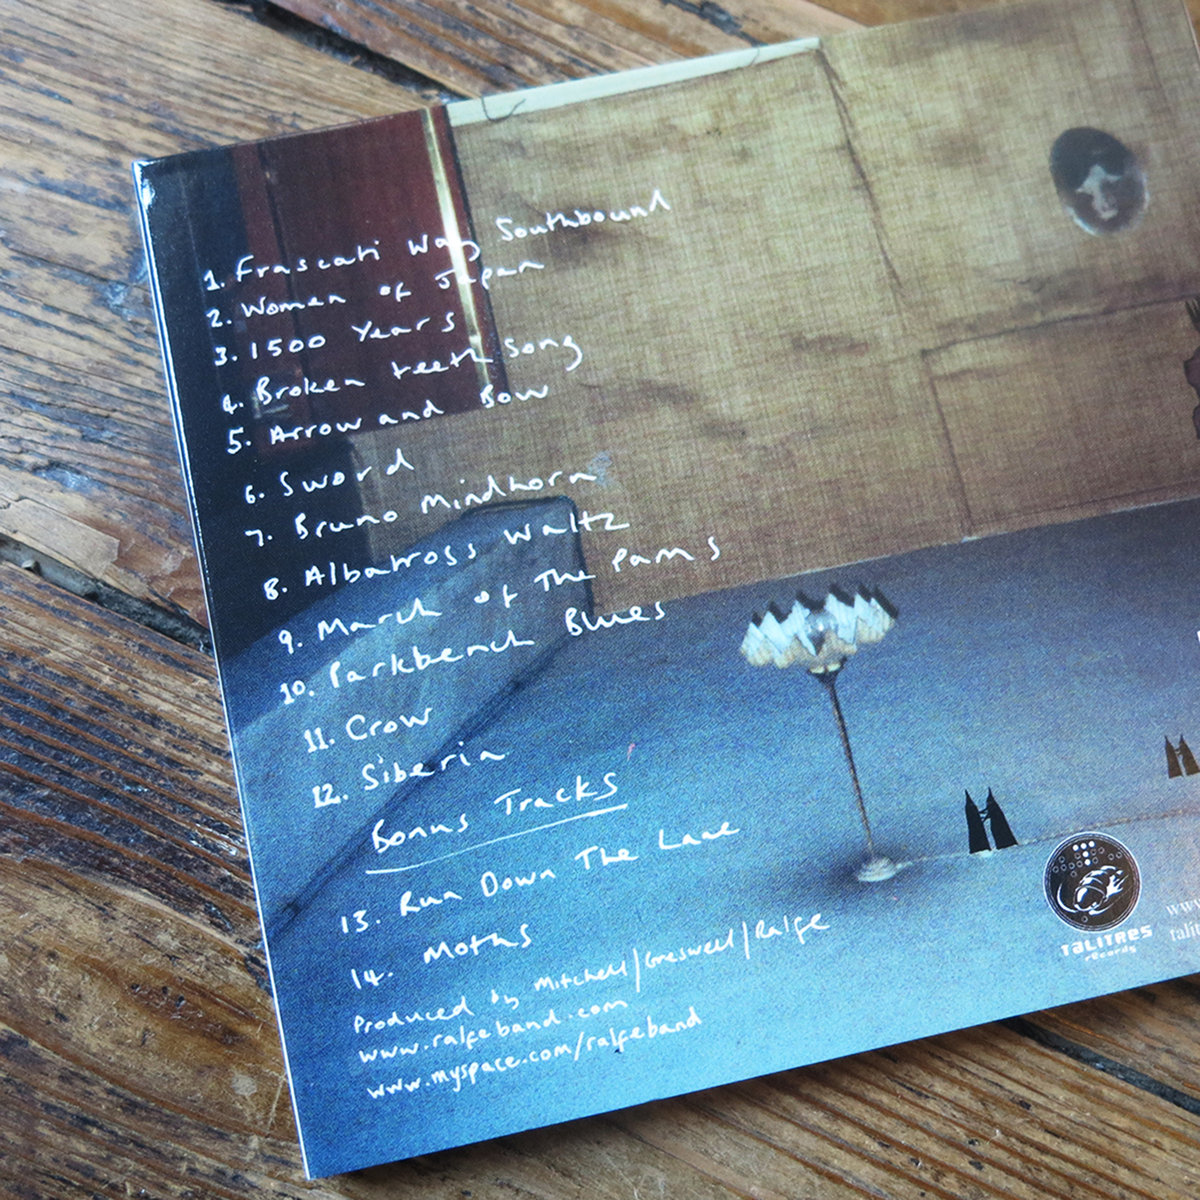 1. Frascati Way Southbound
2. Women of Japan
3. 1500 Years
4. Broken teeth Song
5. Arrow and Bow
6. Sword
7. Bruno Mindhorn
8. Albatross Waltz
9. March of The Pams
10. Parkbench Blues
11. Crow
12. Siberia
Bonus Tracks
13. Run Down The Lane
14. Moths
Produced by Mitchell/Greswell/Ralfe
www.ralfeband.com
www.myspace.com/ralfeband
TALITRES
records
www.
talit